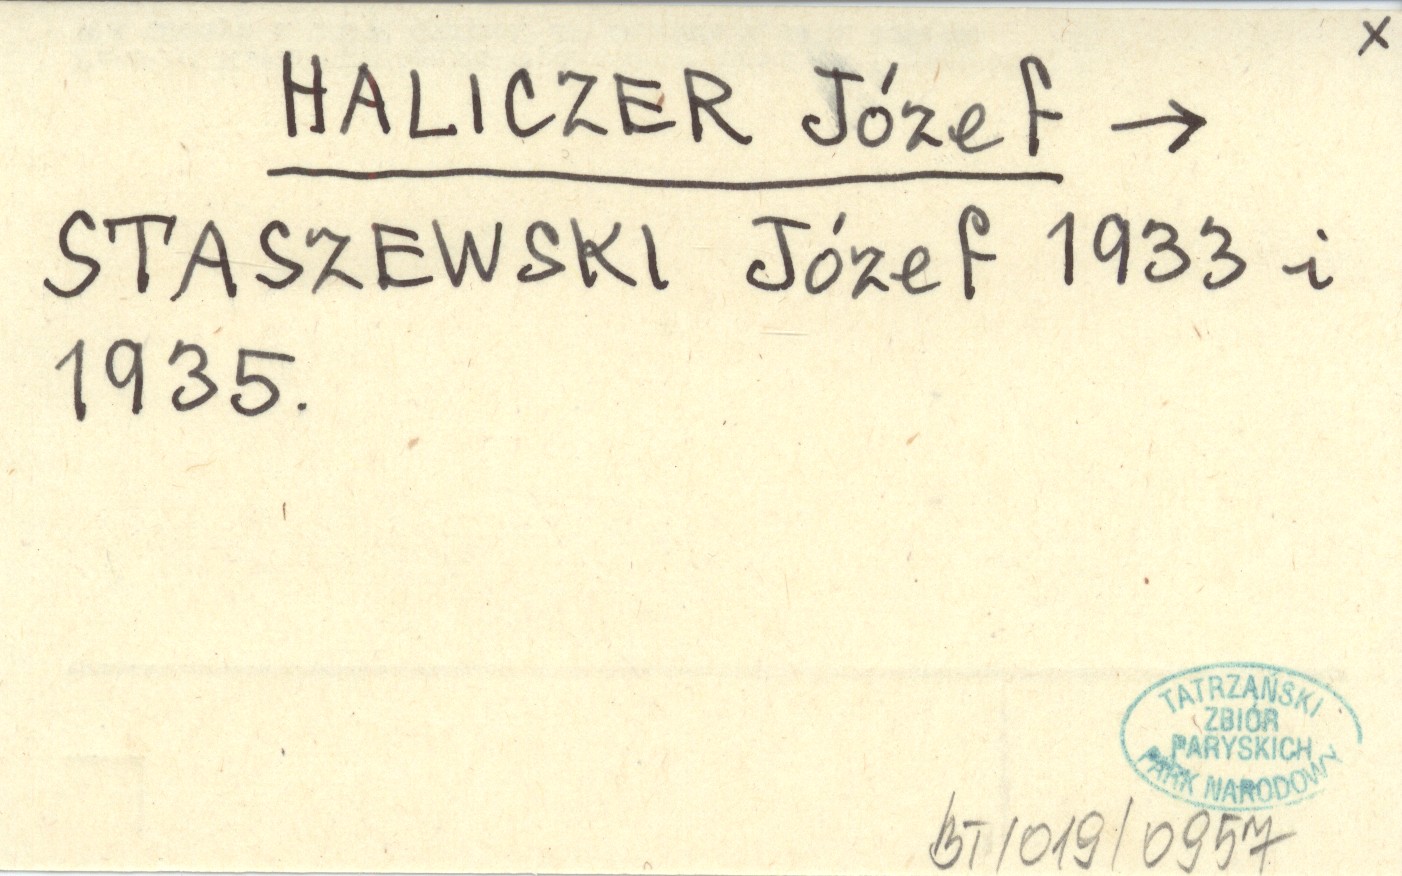 x
HALICZER Józef →
STASZEWSKI Józef 1933 i
1935.
TATRZAŃSKI
ZBIÓR
PARYSKICH
PARK NARODOWY
BT/019/0957